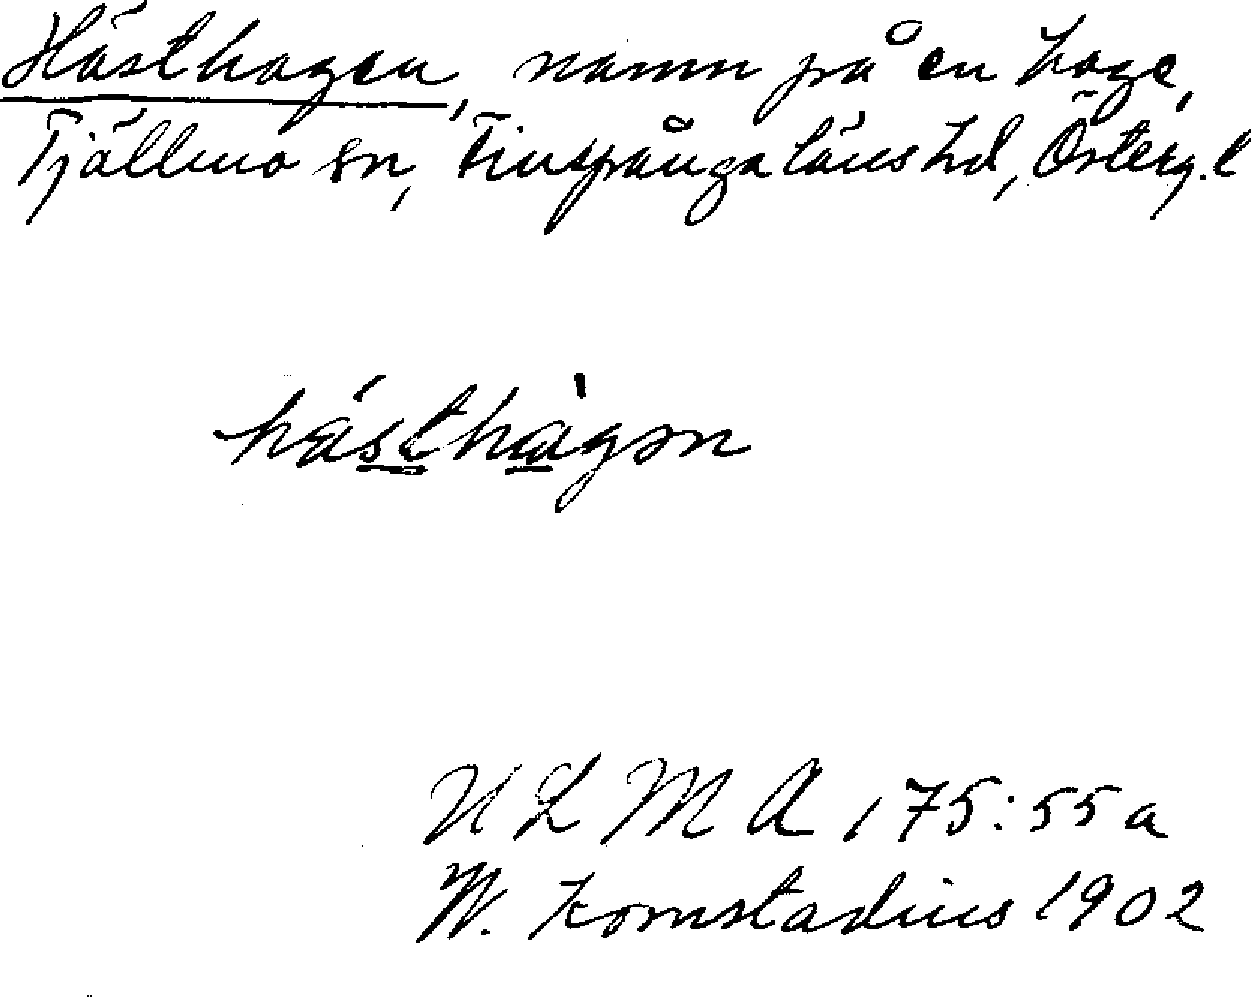 Hästhagen, namn på en hage,
Tjällmo sn, Finspånga läns hd, Österg.l
hästhàgən
ULMA 175:55a
W. Komstadius 1902